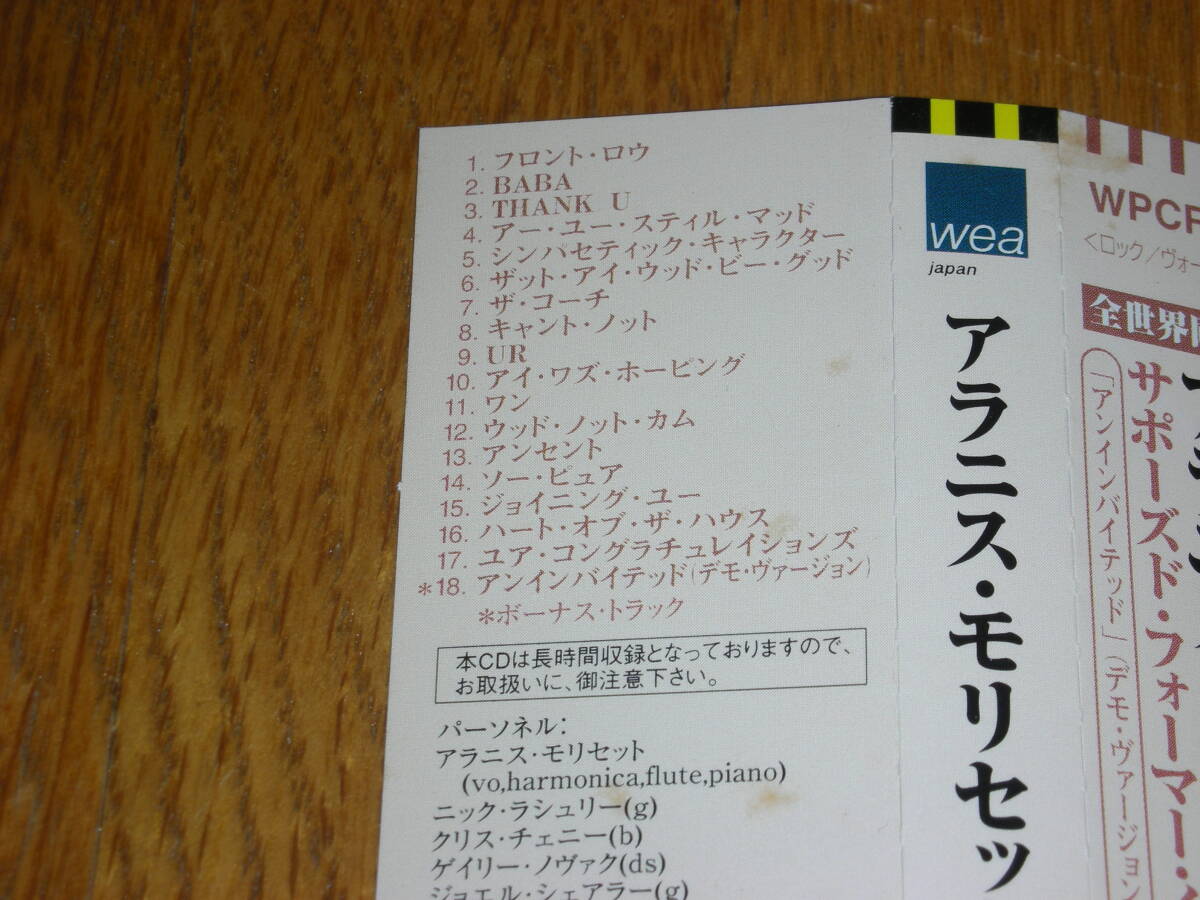 1. フロント・ロウ
2. BABA
3. THANK U
4. アー・ユー・スティル・マッド
5. シンパセティック・キャラクター
6. ザット・アイ・ウッド・ビー・グッド
7. ザ・コーチ
8. キャント・ノット
9. UR
10. アイ・ワズ・ホーピング
11. ワン
12. ウッド・ノット・カム
13. アンセント
14. ソー・ピュア
15. ジョイニング・ユー
16. ハート・オブ・ザ・ハウス
17. ユア・コングラチュレイションズ
*18. アンインバイテッド(デモ・ヴァージョン)
*ボーナス・トラック
本CDは長時間収録となっておりますので、
お取扱いに、御注意下さい。
パーソネル:
アラニス・モリセット
(vo,harmonica,flute,piano)
ニック・ラシュリー(g)
クリス・チェニー(b)
ゲイリー・ノヴァク(ds)
ジョエル・シェアラー(g)
wea
japan
アラニス・モリセッ
WPCR
<ロック/ヴォー
全世界
サポーズド・フォーマー・
「アンインバイテッド」(デモ・ヴァージョン